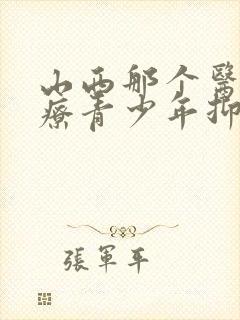 山西那个醫
療青少年抑
張軍平